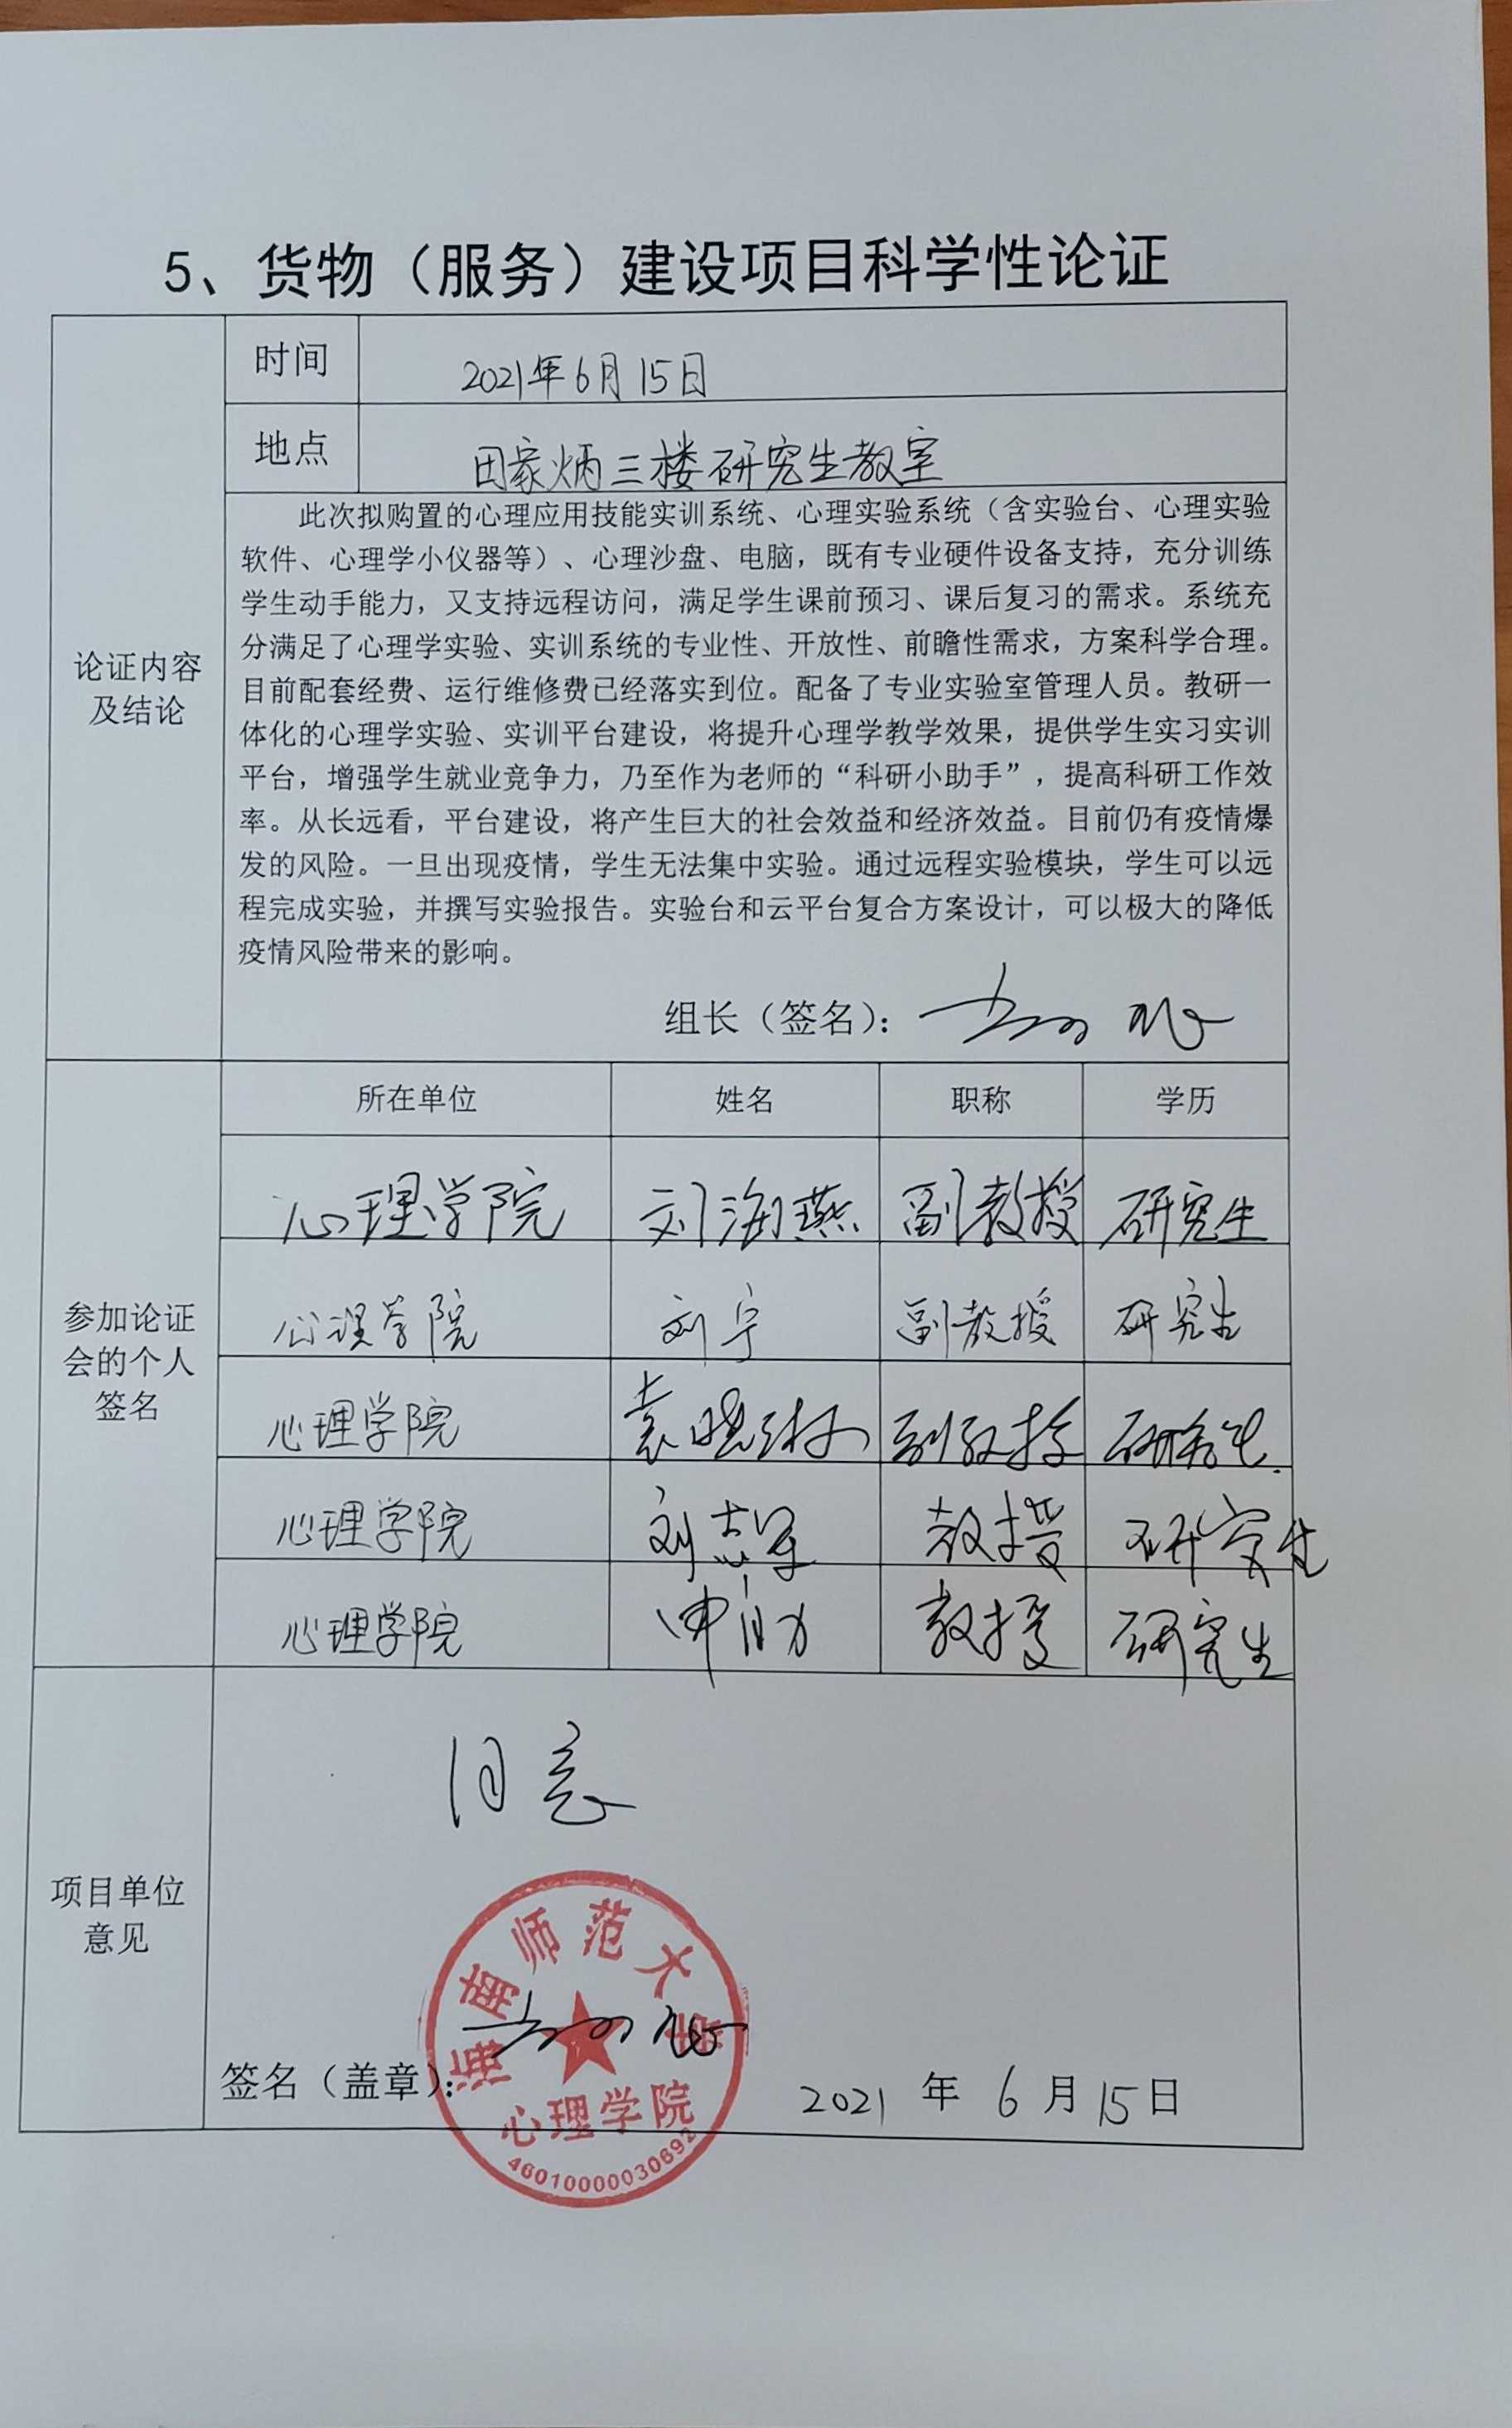 5、货物（服务）建设项目科学性论证
时间
2021年6月15日
地点
田家炳三楼研究生教室
论证内容
及结论
此次拟购置的心理应用技能实训系统、心理实验系统（含实验台、心理实验
软件、心理学小仪器等）、心理沙盘、电脑，既有专业硬件设备支持，充分训练
学生动手能力，又支持远程访问，满足学生课前预习、课后复习的需求。系统充
分满足了心理学实验、实训系统的专业性、开放性、前瞻性需求，方案科学合理。
目前配套经费、运行维修费已经落实到位。配备了专业实验室管理人员。教研一
体化的心理学实验、实训平台建设，将提升心理学教学效果，提供学生实习实训
平台，增强学生就业竞争力，乃至作为老师的“科研小助手”，提高科研工作效
率。从长远看，平台建设，将产生巨大的社会效益和经济效益。目前仍有疫情爆
发的风险。一旦出现疫情，学生无法集中实验。通过远程实验模块，学生可以远
程完成实验，并撰写实验报告。实验台和云平台复合方案设计，可以极大的降低
疫情风险带来的影响。
组长（签名）：
参加论证
会的个人
签名
所在单位 姓名 职称 学历
心理学院 刘海燕 副教授 研究生
心理学院 刘宇 副教授 研究生
心理学院 袁晓琳 副教授 研究生
心理学院 刘志军 教授 研究生
心理学院 申自力 教授 研究生
项目单位
意见
同意
海南师范大学
心理学院
4601000030692
签名（盖章）：
2021 年 6 月 15 日